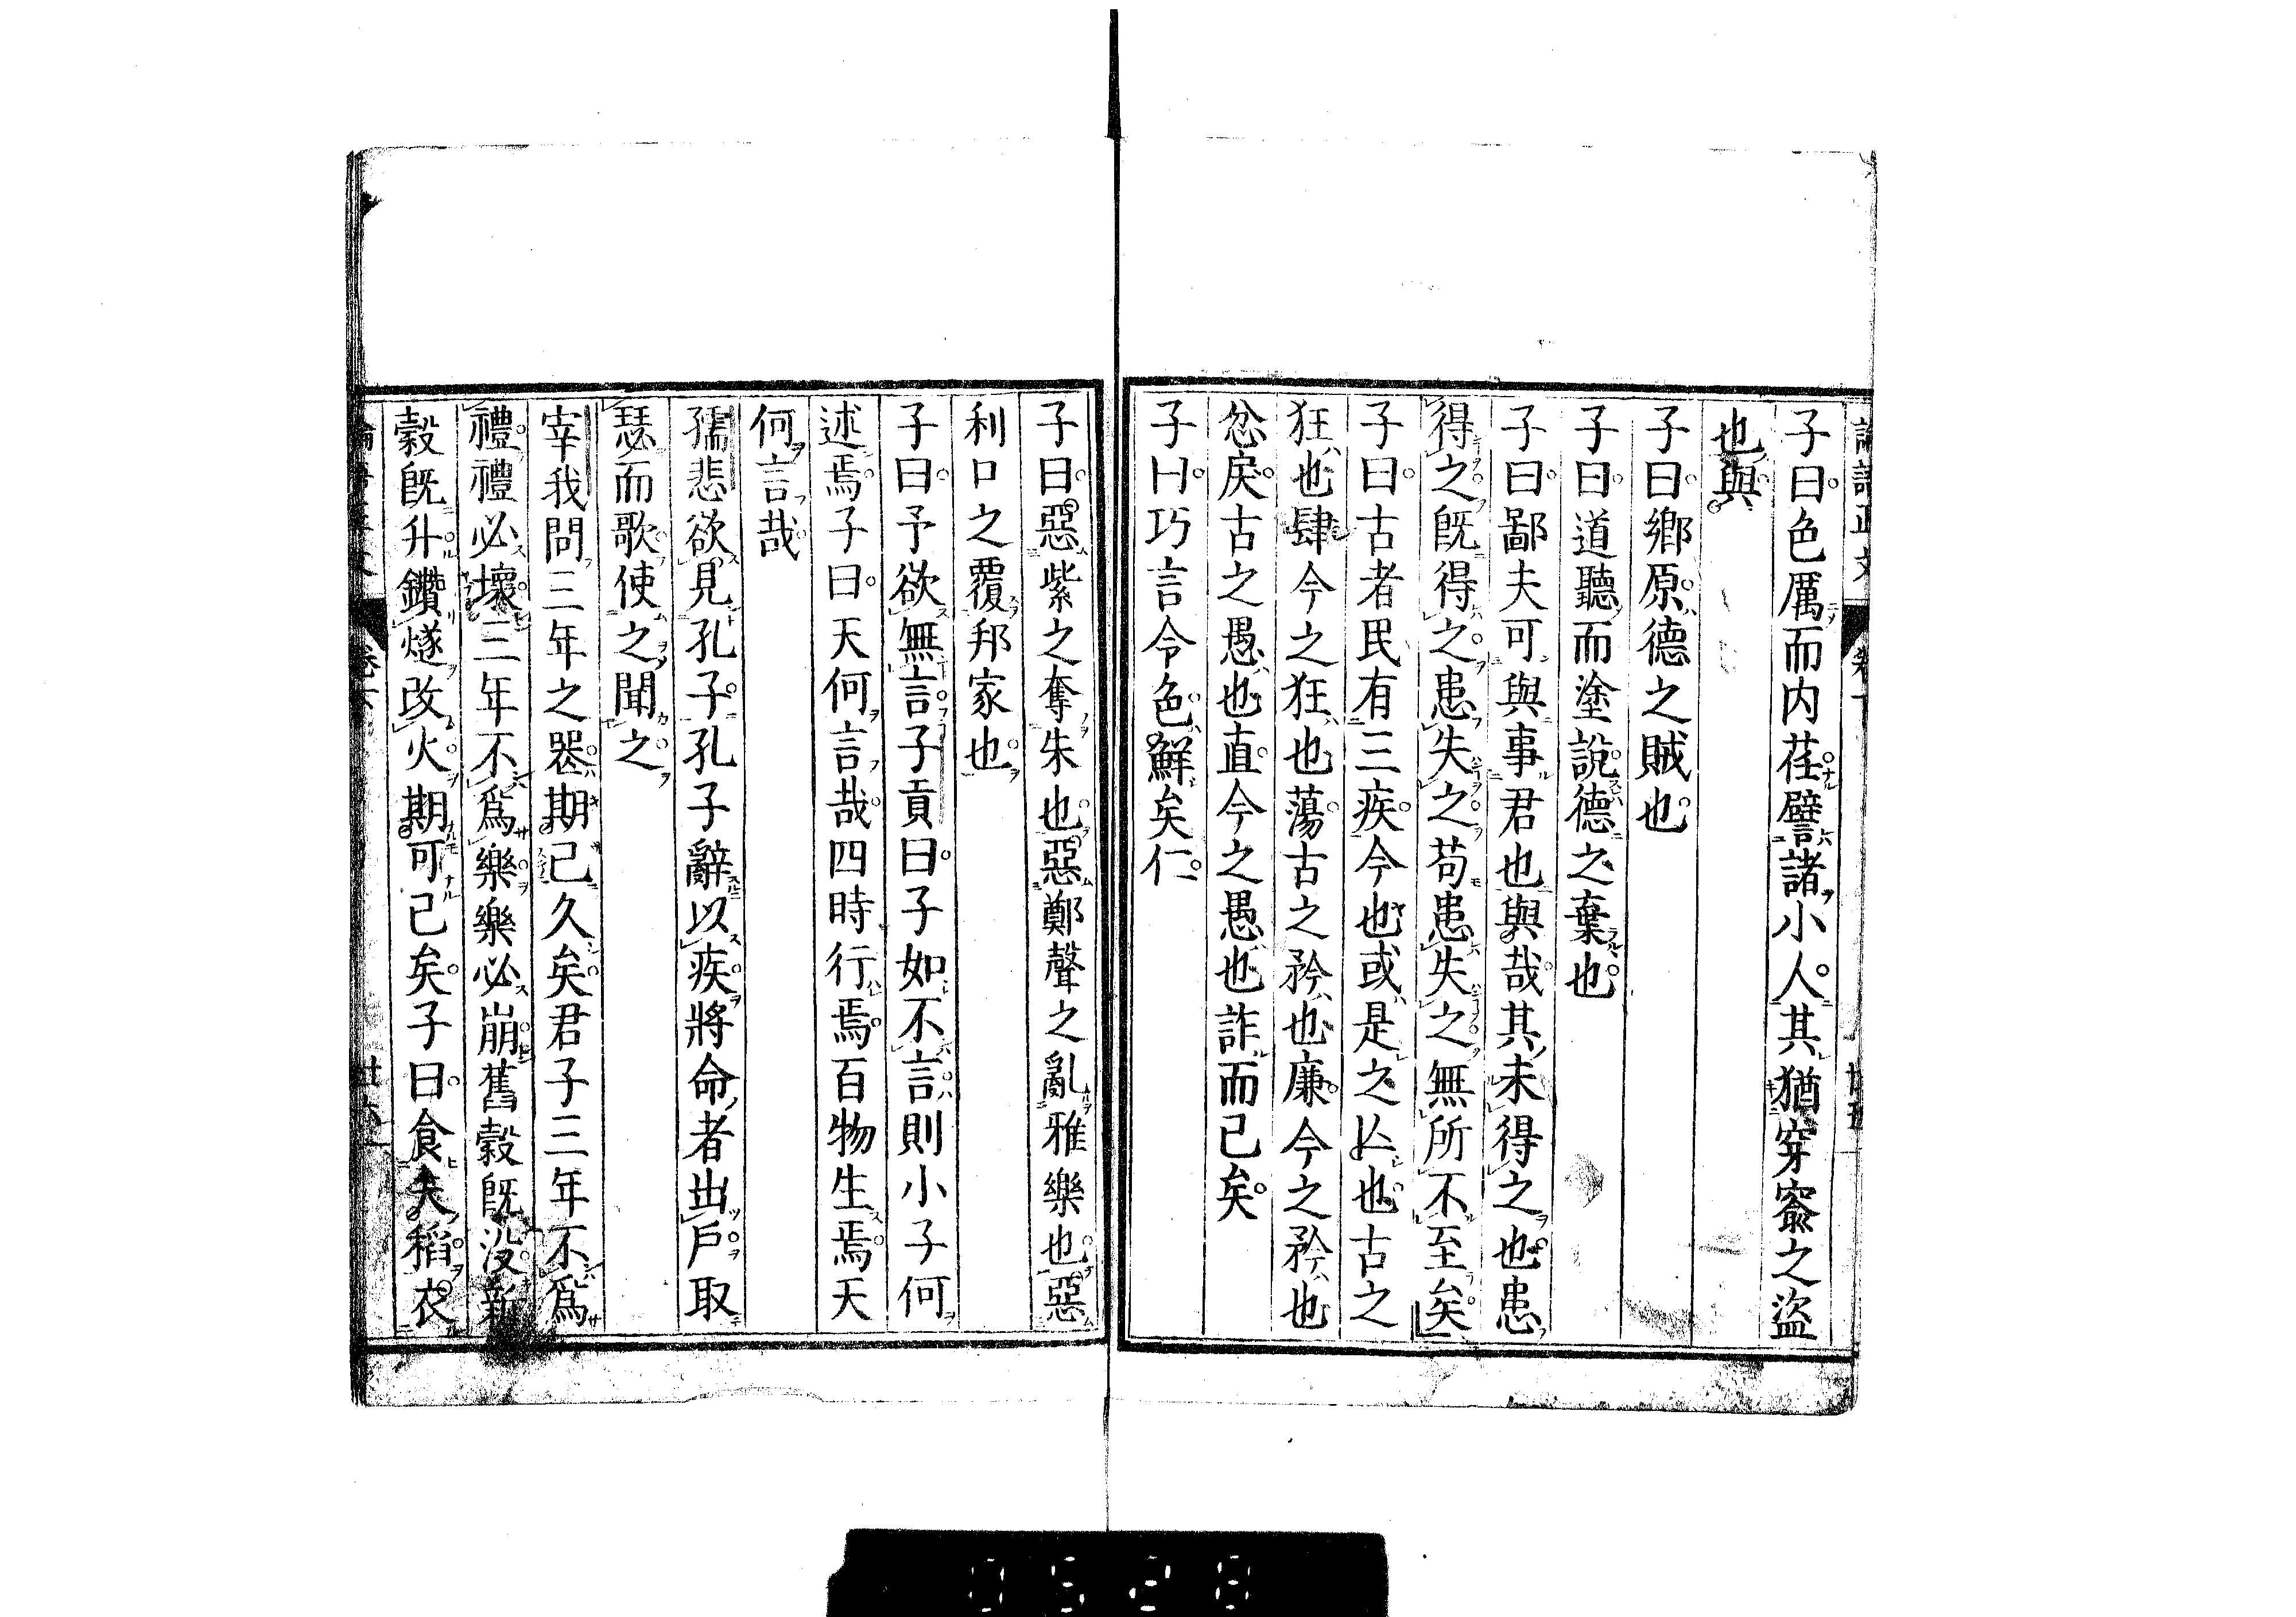 子曰色厲而内荏譬諸小人其猶穿窬之盜
也與
子曰鄉原德之賊也
子曰道聽而塗說德之棄也
子曰鄙夫可與事君也與哉其未得之也患
得之既得之患失之苟患失之無所不至矣
子曰古者民有三疾今也或是之亾也古之
狂也肆今之狂也蕩古之矜也廉今之矜也
忿戾古之愚也直今之愚也詐而已矣
子曰巧言令色鮮矣仁
子曰惡紫之奪朱也惡鄭聲之亂雅樂也惡
利口之覆邦家也
子曰予欲無言子貢曰子如不言則小子何
述焉子曰天何言哉四時行焉百物生焉天
何言哉
孺悲欲見孔子孔子辭以疾將命者出戶取
瑟而歌使之聞之
宰我問三年之喪期已久矣君子三年不爲
禮禮必壞三年不爲樂樂必崩舊穀既沒新
穀既升鑽燧改火期可已矣子曰食夫稻衣
0528